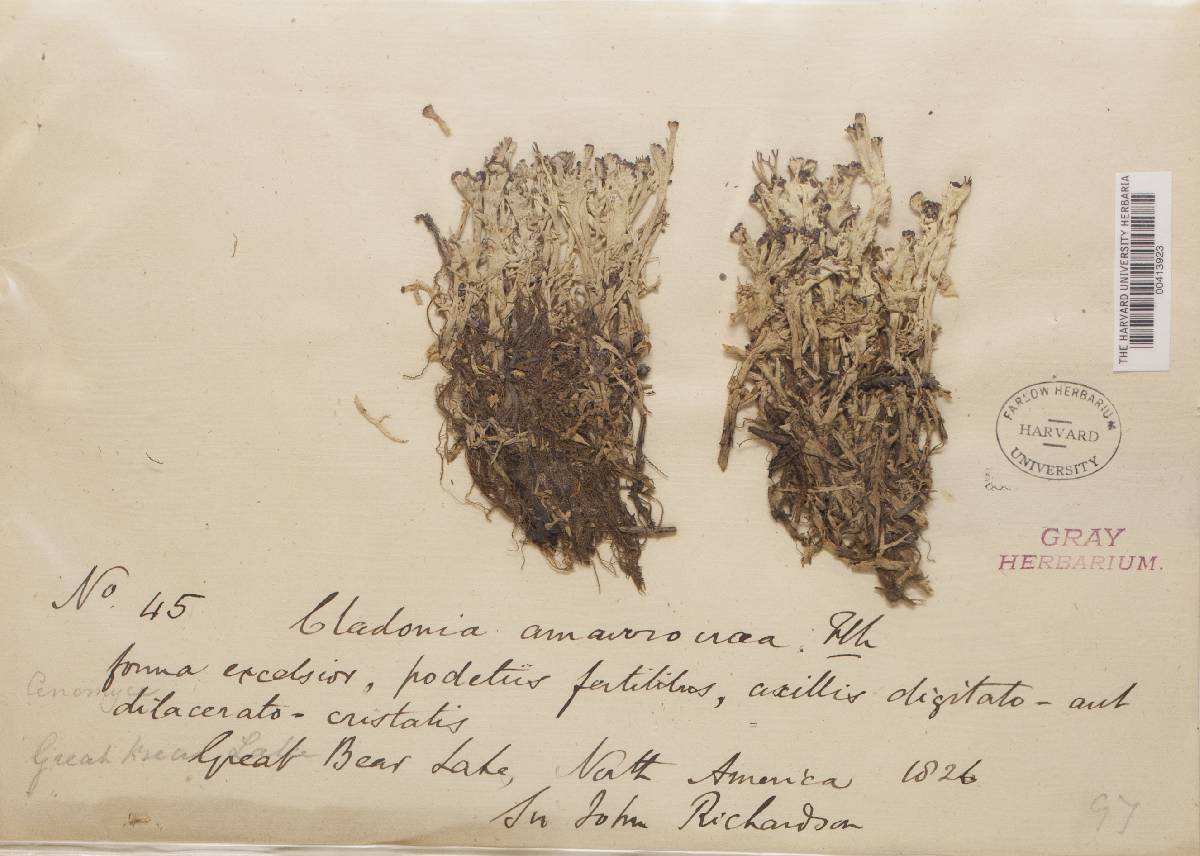 THE HARVARD UNIVERSITY HERBARIA
00413923
FARLOW HERBARIUM
HARVARD
UNIVERSITY
GRAY
HERBARIUM.
No. 45 Cladonia amaurocraea. Flk
forma excelsior, podetiis fertilibus, axillis digitato - aut
Cenomyce
dilacerato - cristatis
Great Bear Lake
Great Bear Lake, North America 1826
Sir John Richardson
97